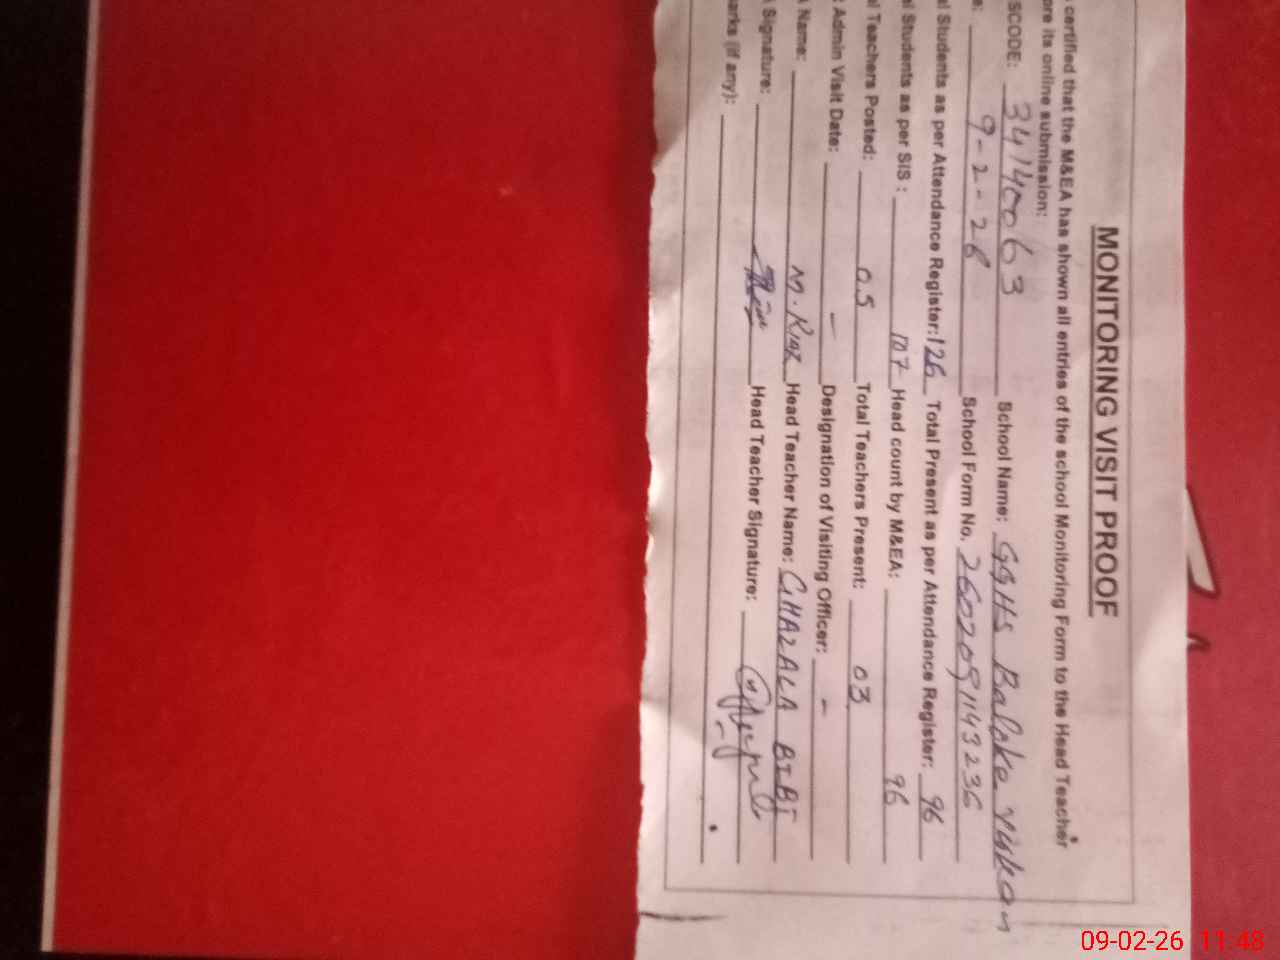 MONITORING VISIT PROOF
certified that the M&EA has shown all entries of the school Monitoring Form to the Head Teacher
ore its online submission:
SCODE: 34140063 School Name: GGHS Balpke
e: 9-2-26 School Form No. 2602091143236
al Students as per Attendance Register: 126 Total Present as per Attendance Register: 96
al Students as per SIS : 107 Head count by M&EA: 96
al Teachers Posted: 05 Total Teachers Present: 03
Admin Visit Date: - Designation of Visiting Officer: -
Name: M. Riaz Head Teacher Name: GHAZALA BIBI
Signature: Head Teacher Signature:
arks (if any):
09-02-26 11:48